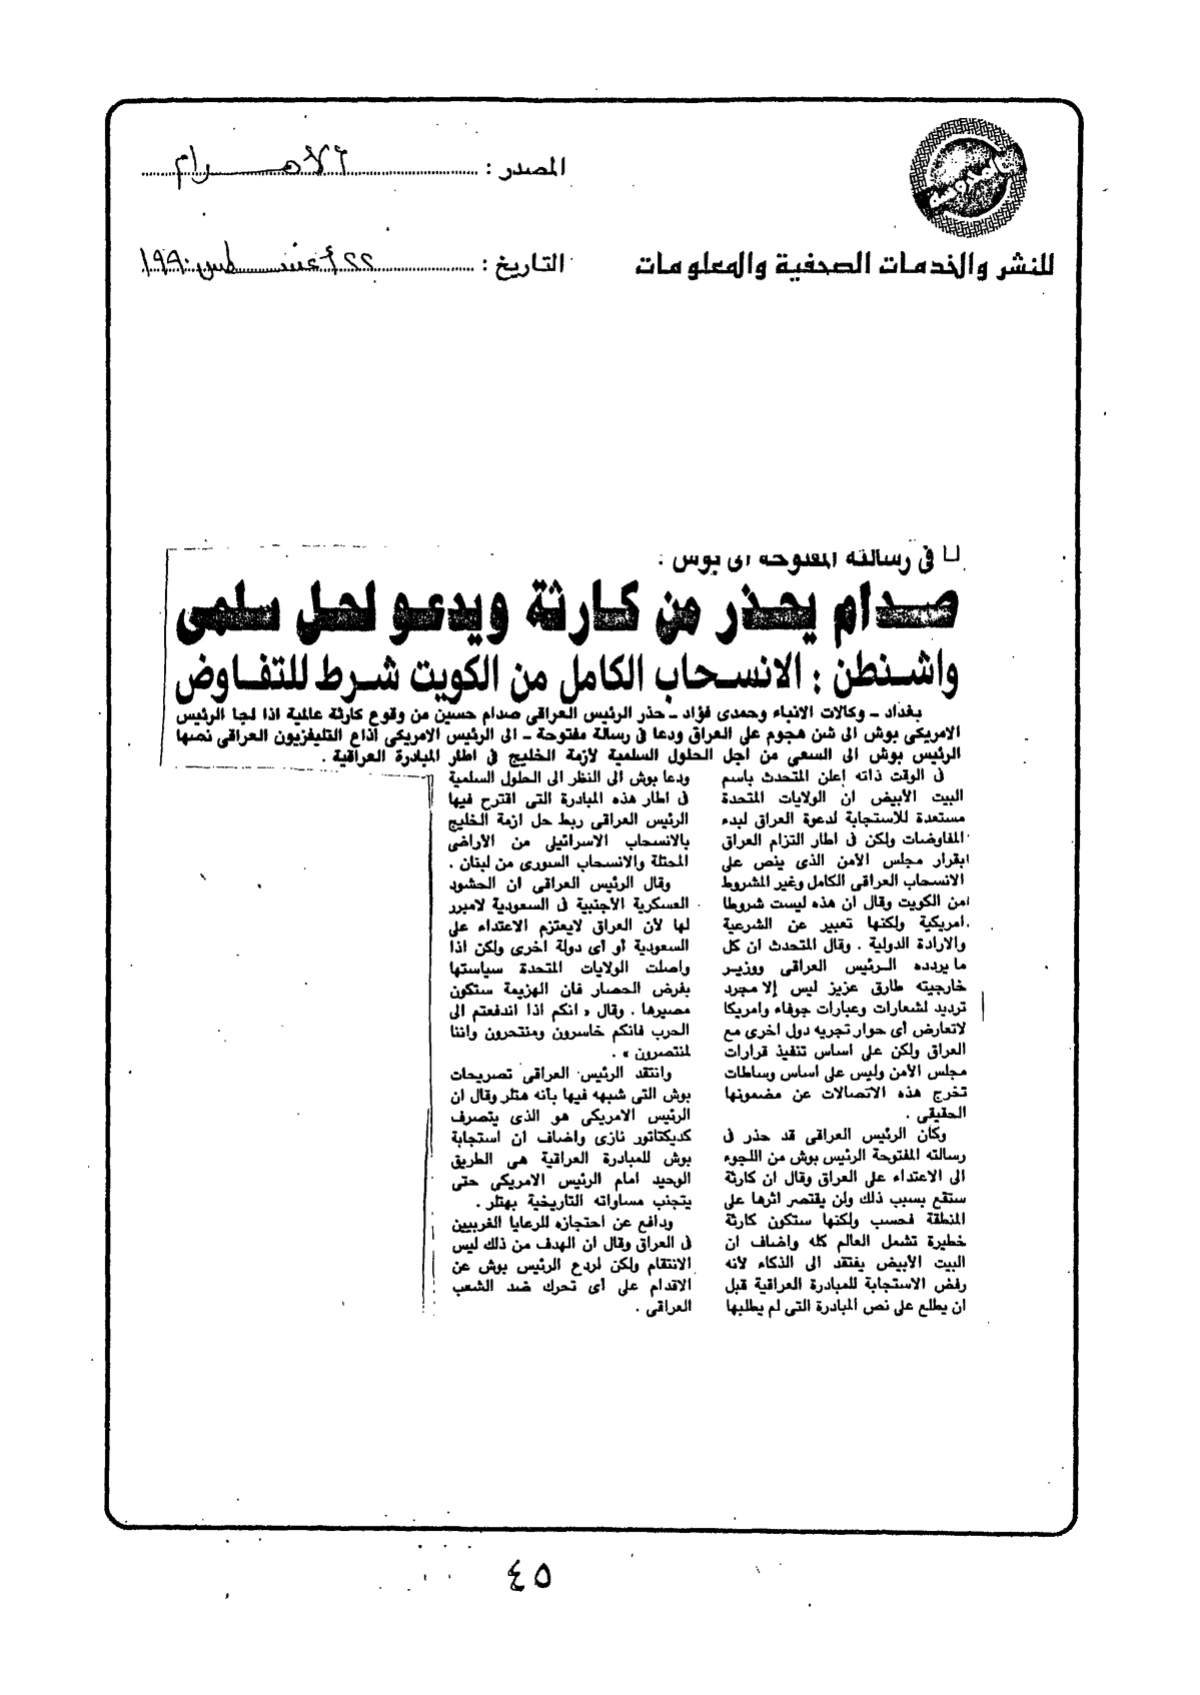 المصدر : الأهـــرام
للنشر والخدمات الصحفية والمعلومات
التاريخ : ٢٢ أغسطس ١٩٩٠
في رسالته المفتوحة الى بوش :
صدام يحذر من كارثة ويدعو لحل سلمى
واشنطن : الانسحاب الكامل من الكويت شرط للتفاوض
بغداد ــ وكالات الانباء وحمدى فؤاد ــ حذر الرئيس العراقى صدام حسين من وقوع كارثة عالمية اذا لجا الرئيس
الامريكى بوش الى شن هجوم على العراق ودعا فى رسالة مفتوحة ــ الى الرئيس الامريكى اذاع التليفزيون العراقى نصها
الرئيس بوش الى السعى من اجل الحلول السلمية لأزمة الخليج فى اطار المبادرة العراقية .
فى الوقت ذاته اعلن المتحدث باسم
البيت الأبيض ان الولايات المتحدة
مستعدة للاستجابة لدعوة العراق لبدء
المفاوضات ولكن فى اطار التزام العراق
بقرار مجلس الأمن الذى ينص على
الانسحاب العراقى الكامل وغير المشروط
من الكويت وقال ان هذه ليست شروطا
امريكية ولكنها تعبير عن الشرعية
والارادة الدولية . وقال المتحدث ان كل
ما يردده الـرئيس العراقى ووزيـر
خارجيته طارق عزيز ليس إلا مجرد
ترديد لشعارات وعبارات جوفاء وامريكا
لاتعارض أى حوار تجريه دول اخرى مع
العراق ولكن على اساس تنفيذ قرارات
مجلس الأمن وليس على اساس وساطات
تخرج هذه الاتصالات عن مضمونها
الحقيقى .
وكان الرئيس العراقى قد حذر فى
رسالته المفتوحة الرئيس بوش من اللجوء
الى الاعتداء على العراق وقال ان كارثة
ستقع بسبب ذلك ولن يقتصر اثرها على
المنطقة فحسب ولكنها ستكون كارثة
خطيرة تشمل العالم كله واضاف ان
البيت الأبيض يفتقد الى الذكاء لأنه
رفض الاستجابة للمبادرة العراقية قبل
ان يطلع على نص المبادرة التى لم يطلبها
ودعا بوش الى النظر الى الحلول السلمية
فى اطار هذه المبادرة التى اقترح فيها
الرئيس العراقى ربط حل ازمة الخليج
بالانسحاب الاسرائيلى من الأراضى
المحتلة والانسحاب السورى من لبنان .
وقال الرئيس العراقى ان الحشود
العسكرية الأجنبية فى السعودية لامبرر
لها لأن العراق لايعتزم الاعتداء على
السعودية أو أى دولة اخرى ولكن اذا
واصلت الولايات المتحدة سياستها
بفرض الحصار فان الهزيمة ستكون
مصيرها . وقال « انكم اذا اندفعتم الى
الحرب فانكم خاسرون ومنتحرون واننا
لمنتصرون » .
وانتقد الرئيس العراقى تصريحات
بوش التى شبهه فيها بأنه هتلر وقال ان
الرئيس الامريكى هو الذى يتصرف
كديكتاتور نازى واضاف ان استجابة
بوش للمبادرة العراقية هى الطريق
الوحيد امام الرئيس الامريكى حتى
يتجنب مساواته التاريخية بهتلر .
ودافع عن احتجازه للرعايا الغربيين
فى العراق وقال ان الهدف من ذلك ليس
الانتقام ولكن لردع الرئيس بوش عن
الاقدام على أى تحرك ضد الشعب
العراقى .
٤٥